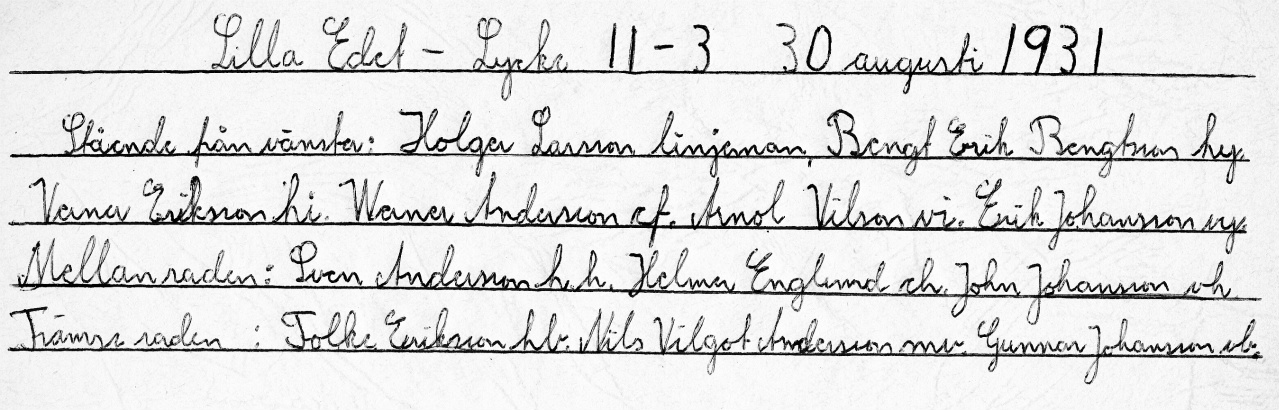 Lilla Edet - Lycke 11-3 30 augusti 1931
Stående från vänster: Holger Larsson linjeman, Bengt Erik Bengtsson hy.
Verner Eriksson hi. Werner Andersson cf. Arnol Vilson vi. Erik Johansson vy.
Mellanraden: Sven Andersson h.h. Helmer Englund ch. John Johansson vh
Främre raden : Folke Eriksson hb. Nils Vilgot Andersson mv. Gunnar Johansson vb.